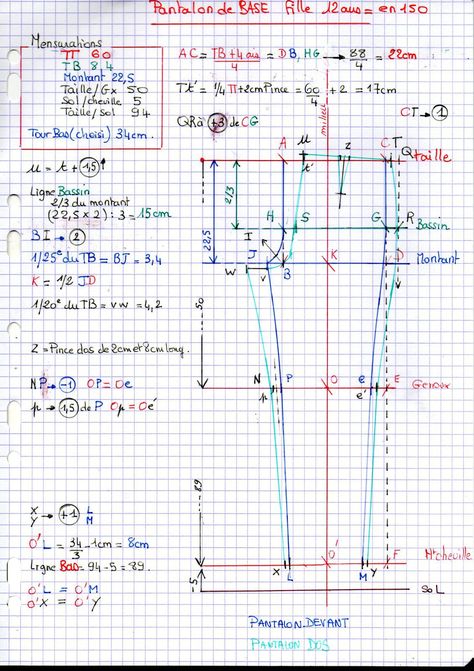 Pantalon de BASE fille 12 ans = en 150
Mensurations
TT 60
TB 84
Montant 22,5
Taille/Gx 50
Sol/cheville 5
Taille/sol 94
Tour Bas (choisi) 34cm.
AC = TB + 4 ans / 4 = DB, HG → 88/4 = 22cm
Tt' = 1/4 TT + 2cm Pince = 60/4 + 2 = 17cm
QR à +3 de CG
CT → 1
milieu
µ = t + 1,5 ↑
Ligne Bassin
2/3 du montant
(22,5 x 2) : 3 = 15cm
BI → 2
1/25e du TB = BJ = 3,4
K = 1/2 JD
1/20e du TB = VW = 4,2
Z = Pince dos de 2cm et 8cm long.
NP → -1 OP = Oe
p → 1,5 de P Op = Oe'
X → +1 L
Y M
O'L = 34/3 - 1cm = 8cm
Ligne Bas = 94 - 5 = 89.
O'L = O'M
O'X = O'Y
A µ t' z C T Q Taille
2/3
22,5
H S G R Bassin
I
J B K D Montant
W V
50
N P O e E Genoux
p e'
89
O' F Ht cheville
X L M Y
5
SOL
PANTALON DEVANT
PANTALON DOS